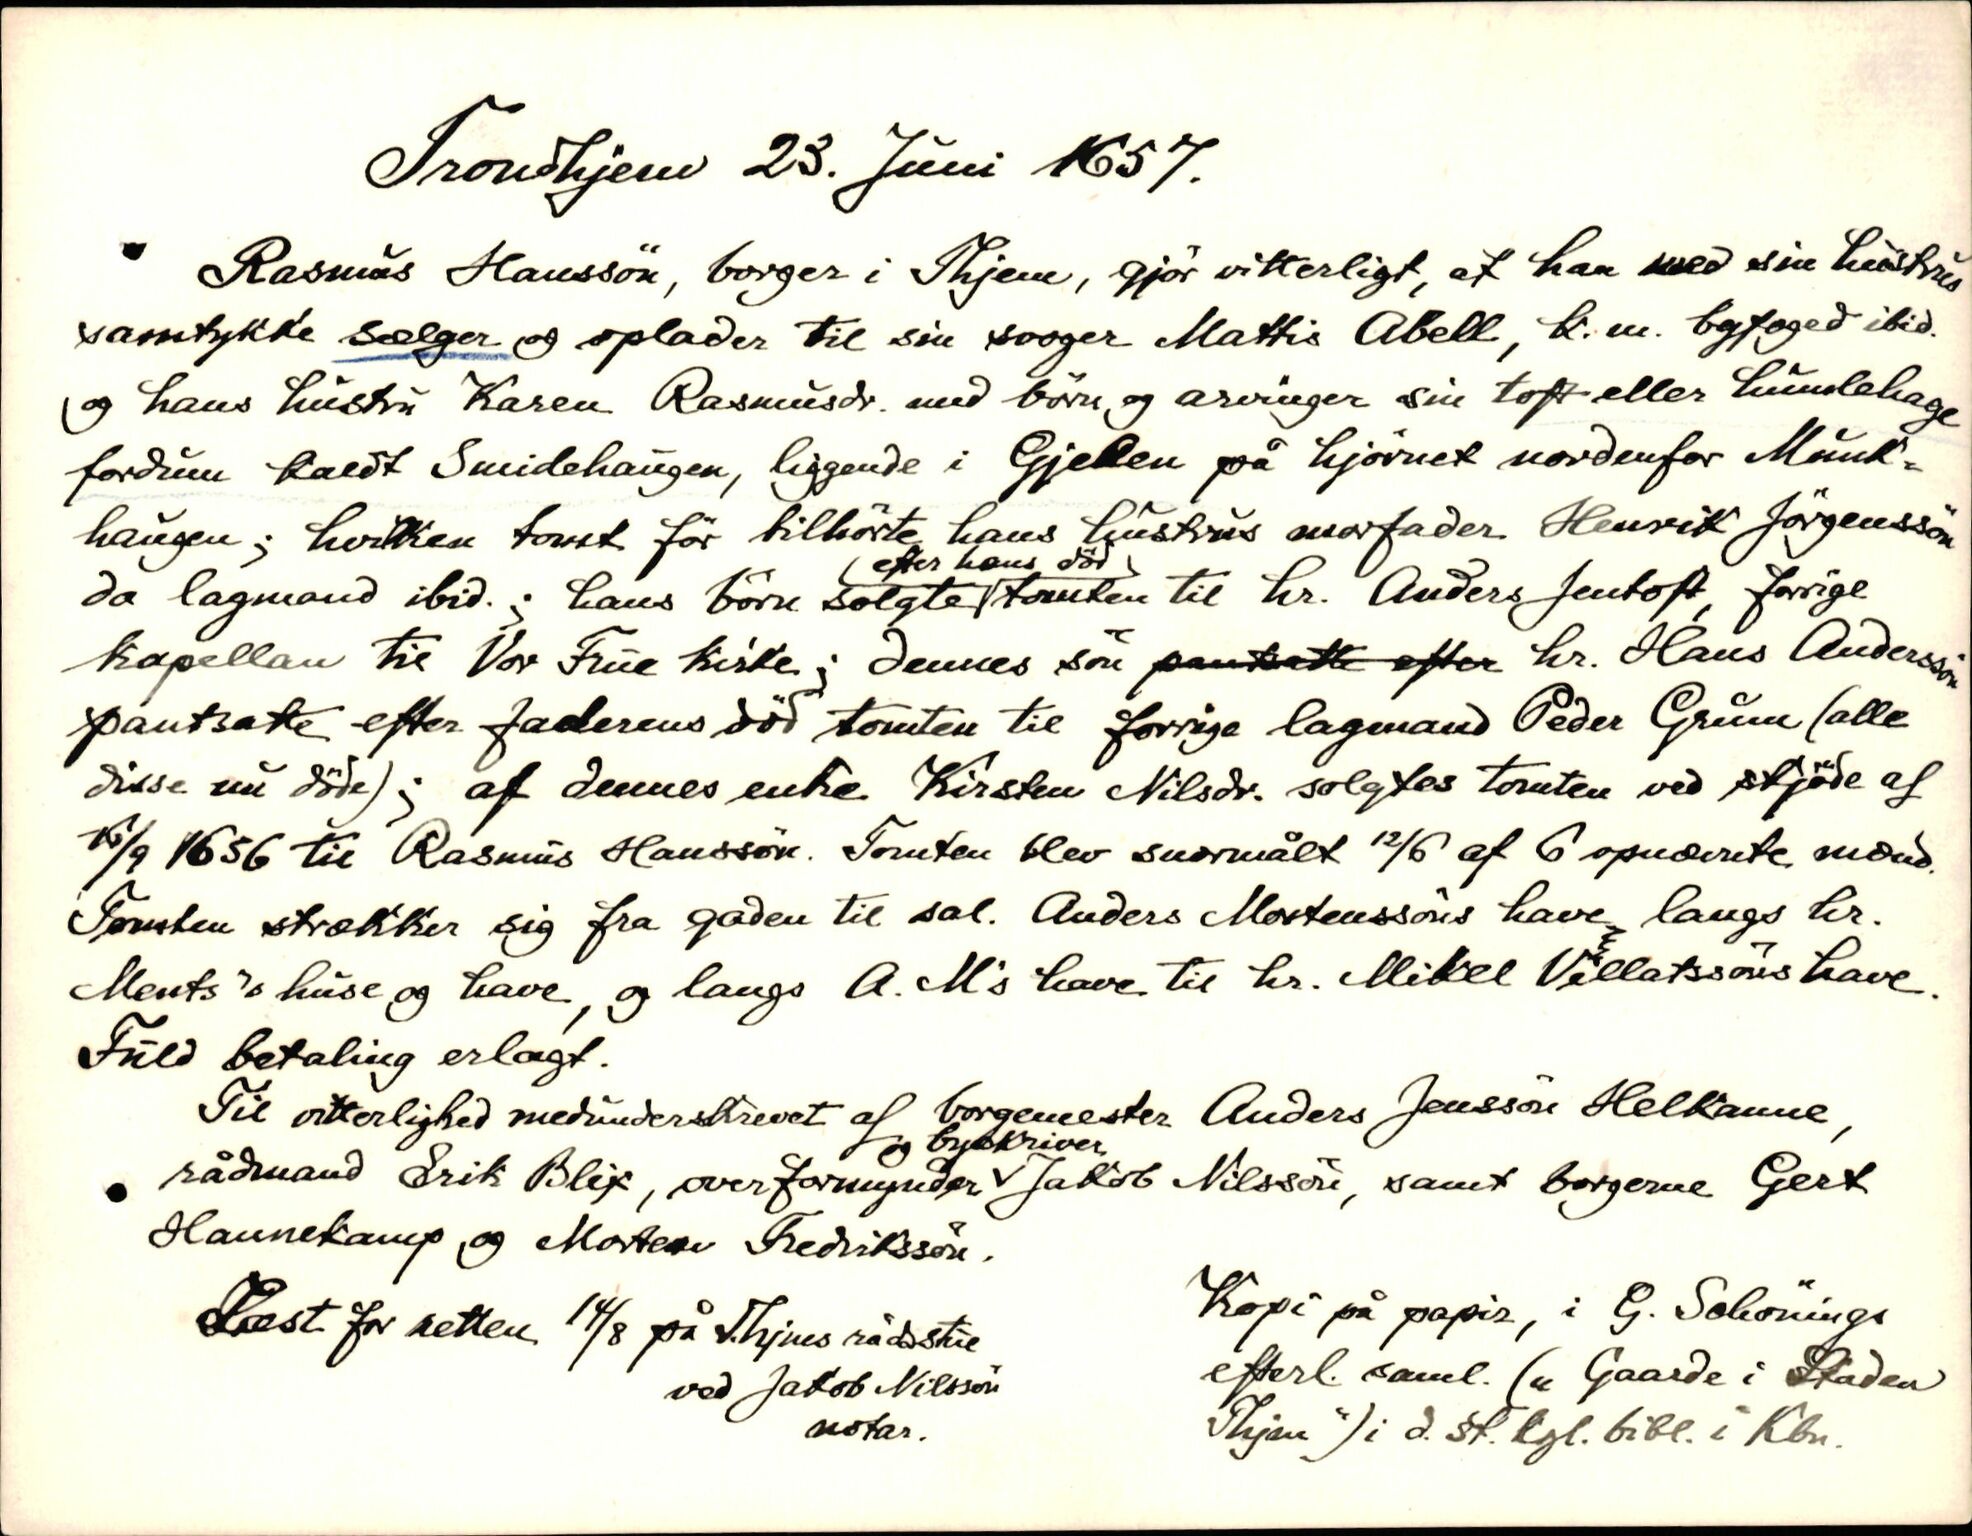 Trondhjem 23. Juni 1657.
Rasmus Hanssön, borger i Thjem, gjör vitterligt, at han med sin hustrus
samtykke sælger og oplader til sin svoger Mattis Abell, k. m. byfoged ibid.
og hans hustru Karen Rasmusdr. med börn og arvinger sin toft eller humlehage
fordum kaldt Smidehaugen, liggende i Gjellen på hjörnet nordenfor Munk-
haugen; hvilken tomt för tilhörte hans hustrus morfader Henrik Jörgenssön
da lagmand ibid.; hans börn solgte (efter hans död) tomten til hr. Anders Jentoft, forrige
kapellan til Vor Frue kirke; dennes sön pantsatte efter hr. Hans Anderssön
pantsatte efter faderens död tomten til forrige lagmand Peder Grum (alle
disse nu döde); af dennes enke Kirsten Nilsdr. solgtes tomten ved skjöde af
16/9 1656 til Rasmus Hanssön. Tomten blev snormålt 12/6 af 6 opnævnte mænd.
Tomten strækker sig fra gaden til sal. Anders Mortenssöns have, langs hr.
Ments's huse og have, og langs A. M's have til hr. Mikkel Villatssöns have.
Fuld betaling erlagt.
Til vitterlighed medunderskrevet af borgemester Anders Jenssön Helkanne,
rådmand Erik Blix, overformynder og byskriver Jakob Nilssön, samt borgerne Gert
Hannekamp og Morten Fredrikssön.
Læst for retten 14/8 på Thjms rådstue
ved Jakob Nilssön
notar.
Kopi på papir, i G. Schönings
efterl. saml. („Gaarde i Staden
Thjem") i d. st. kgl. bibl. i Kbn.